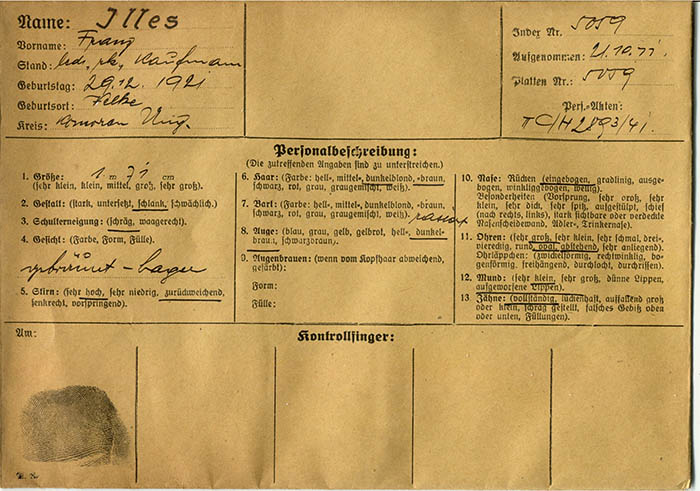 Name: Illes
Vorname: Franz
Stand: led, rk, Kaufmann
Geburtstag: 29.12. 1921
Geburtsort: Felke
Kreis: Komoran Ung.
Index Nr. 5059
Aufgenommen: 21.10.41.
Platten Nr.: 5059
Pers.-Akten:
II C/H 2893/41.
Personalbeschreibung:
(Die zutreffenden Angaben sind zu unterstreichen.)
1. Größe: 1 m 71 cm
(sehr klein, klein, mittel, groß, sehr groß).
2. Gestalt: (stark, untersetzt, schlank, schwächlich).
3. Schulterneigung: (schräg, waagerecht).
4. Gesicht: (Farbe, Form, Fülle).
gebräunt - hager
5. Stirn: (sehr hoch, sehr niedrig, zurückweichend,
senkrecht, vorspringend).
6. Haar: (Farbe: hell-, mittel-, dunkelblond, -braun,
schwarz, rot, grau, graugemischt, weiß).
7. Bart: (Farbe: hell-, mittel-, dunkelblond, -braun,
schwarz, rot, grau, graugemischt, weiß). rasiert
8. Auge: (blau, grau, gelb, gelbrot, hell-, dunkel-
braun, schwarzbraun).
9. Augenbrauen: (wenn vom Kopfhaar abweichend,
gefärbt):
Form:
Fülle:
10. Nase: Rücken (eingebogen, gradlinig, ausge-
bogen, winkliggebogen, wellig).
Besonderheiten (Vorsprung, sehr groß, sehr
klein, sehr dick, sehr spitz, aufgestülpt, schief
(nach rechts, links), stark sichtbare oder verdeckte
Nasenscheidewand, Adler-, Trinkernase).
11. Ohren: (sehr groß, sehr klein, sehr schmal, drei-,
viereckig, rund, oval, abstehend, sehr anliegend).
Ohrläppchen: (zwickelförmig, rechtwinklig, bo-
genförmig, freihängend, durchlocht, durchrissen).
12. Mund: (sehr klein, sehr groß, dünne Lippen,
aufgeworfene Lippen).
13. Zähne: (vollständig, lückenhaft, auffallend groß
oder klein, schräg gestellt, falsches Gebiß oben
oder unten, Füllungen).
Am:
Kontrollfinger: